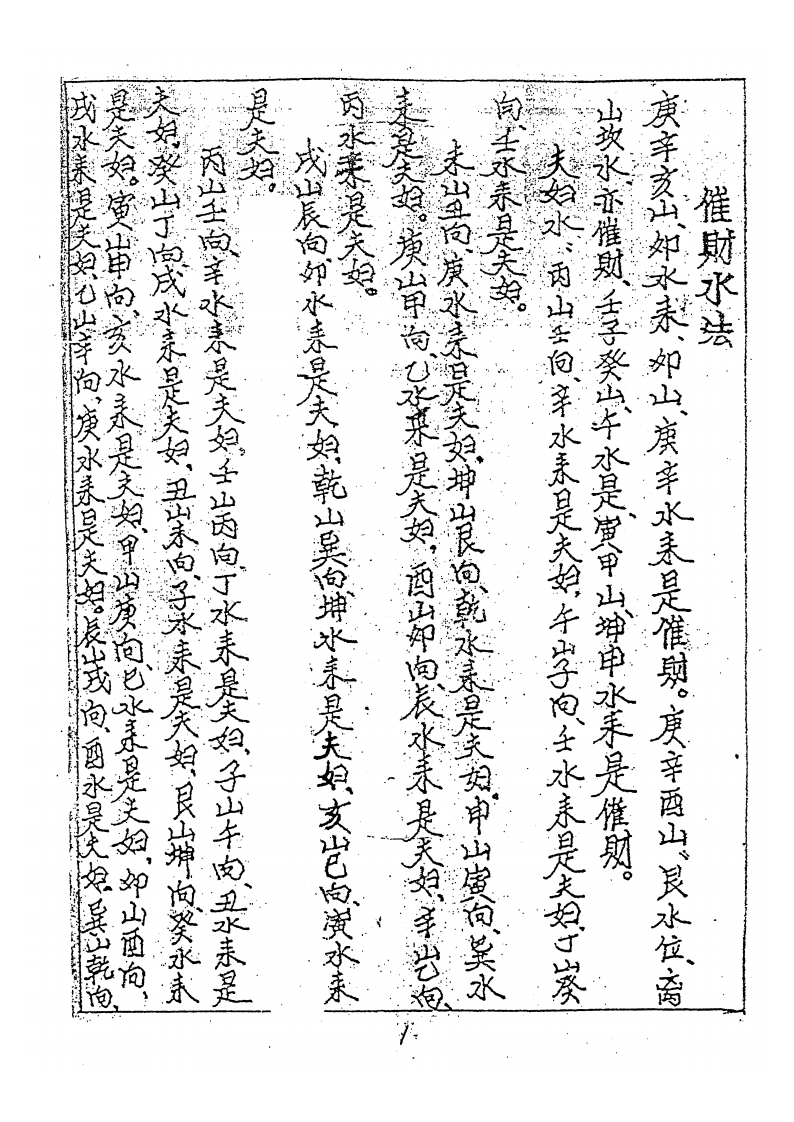 催財水法
庚辛亥山、卯水来、卯山、庚辛水来是催财。庚辛酉山、艮水位、离
山坎水、亦催财、壬子癸山、午水是、寅甲山、坤申水来是催财。
夫妇水、丙山壬向、辛水来是夫妇，午山子向、壬水来是夫妇、丁山癸
向、壬水来是夫妇。
未山丑向、庚水来是夫妇、坤山艮向、乾水来是夫妇。申山寅向、巽水
来是夫妇。庚山甲向、乙水来是夫妇，酉山卯向、辰水来是夫妇、辛山乙向、
丙水来是夫妇。
戌山辰向、卯水来是夫妇，乾山巽向、坤水来是夫妇、亥山巳向、寅水来
是夫妇。
丙山壬向、辛水来是夫妇、壬山丙向丁水来是夫妇、子山午向、丑水来是
夫妇，癸山丁向、戌水来是夫妇、丑山未向、子水来是夫妇、艮山坤向、癸水来
是夫妇。寅山申向、亥水来是夫妇、甲山庚向、巳水来是夫妇，卯山酉向、
戌水来是夫妇、乙山辛向、庚水来是夫妇。辰山戌向、酉水是夫妇、巽山乾向、
1